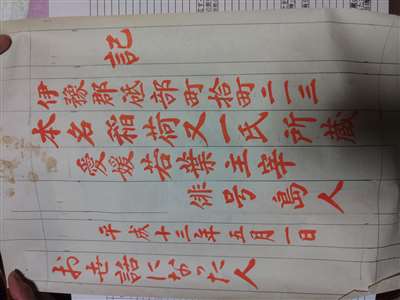 記
伊豫郡砥部町拾町二一三
本名稲荷又一氏所蔵
愛媛若葉主宰
俳号島人
平成十三年五月一日
お世話になった人